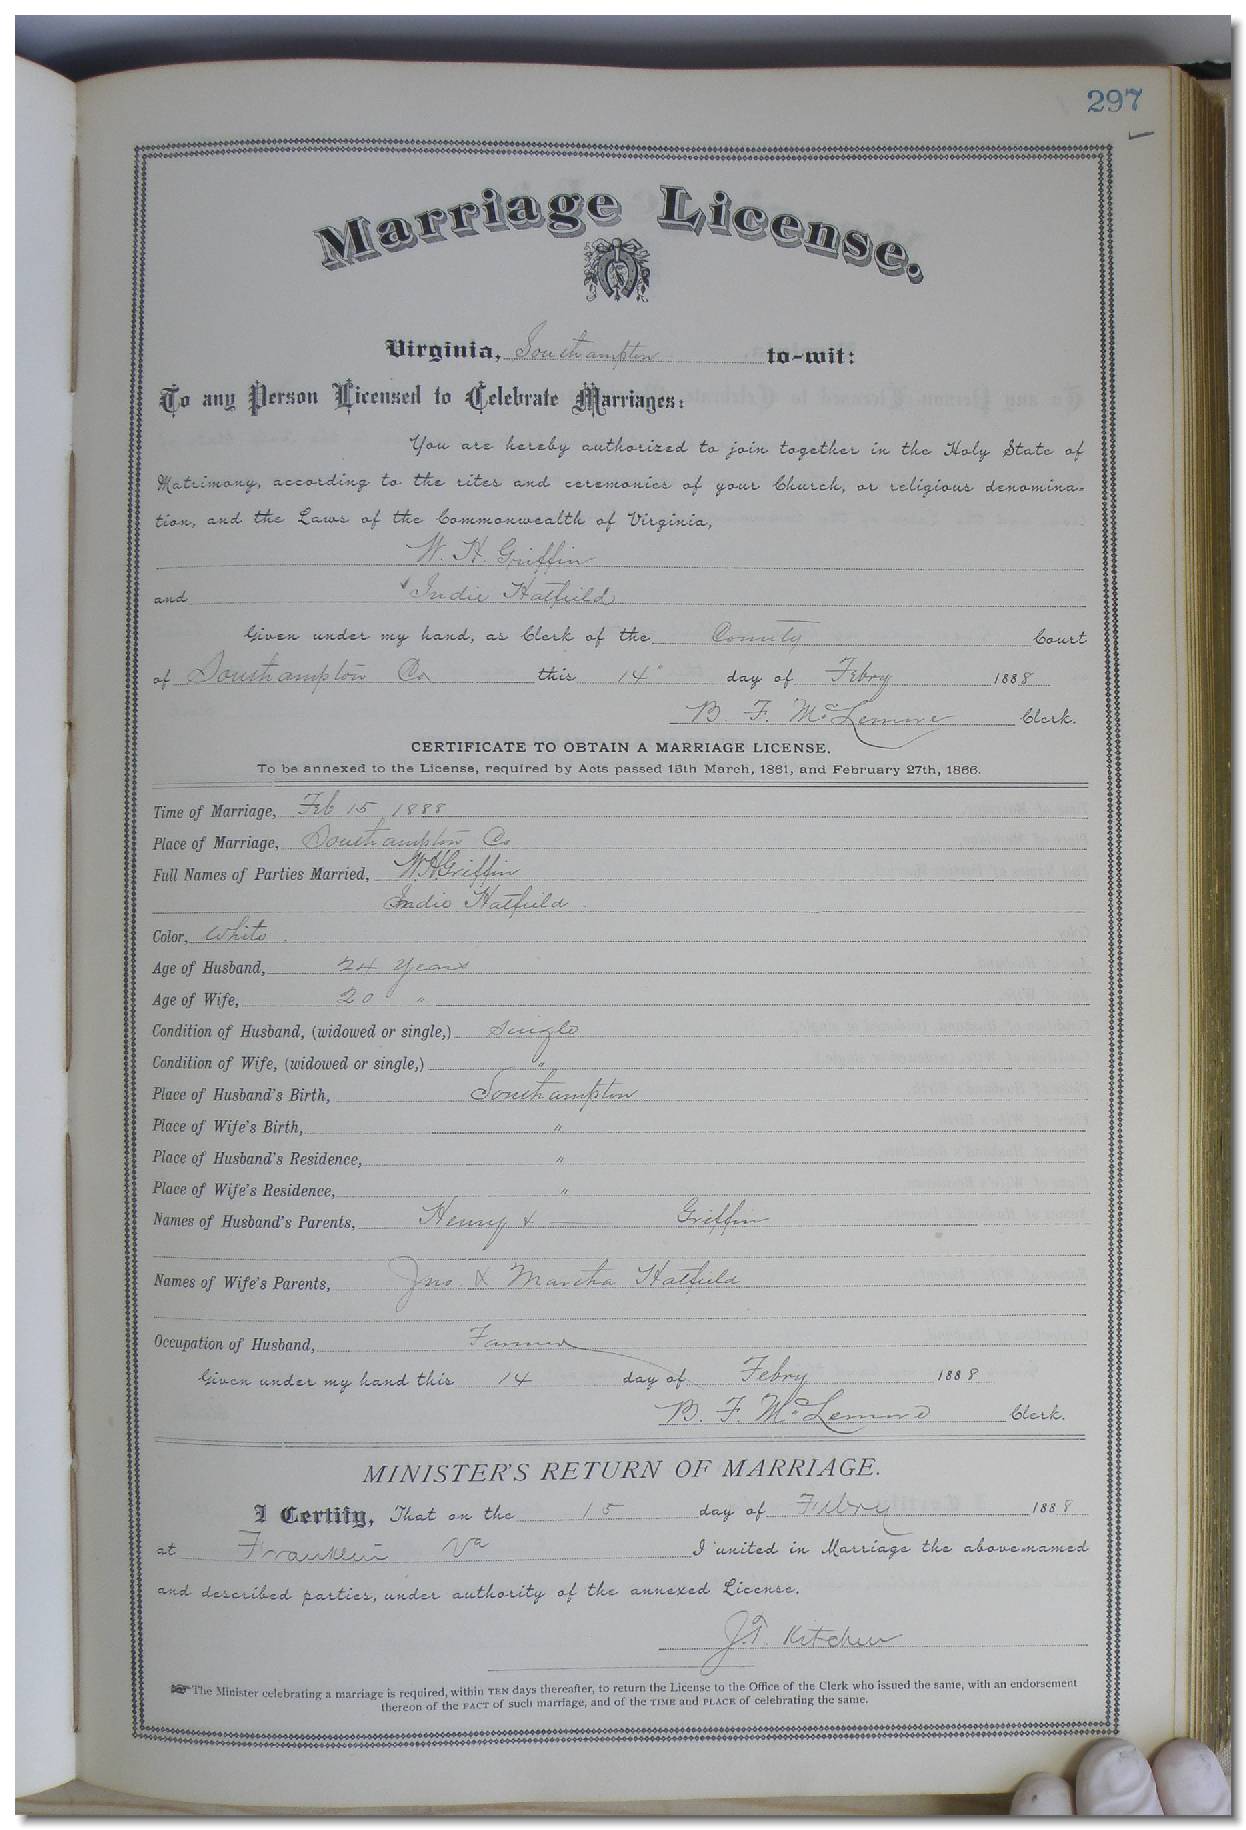 297
Marriage License.
Virginia, Southampton to-wit:
To any Person Licensed to Celebrate Marriages:
You are hereby authorized to join together in the Holy State of
Matrimony, according to the rites and ceremonies of your Church, or religious denomina-
tion, and the Laws of the Commonwealth of Virginia,
W. H. Griffin
and Indie Hatfield
Given under my hand, as Clerk of the County Court
of Southampton Co this 14" day of Febry 1888
B. F. McLemore Clerk.
CERTIFICATE TO OBTAIN A MARRIAGE LICENSE.
To be annexed to the License, required by Acts passed 15th March, 1861, and February 27th, 1866.
Time of Marriage, Feb 15 1888
Place of Marriage, Southampton Co
Full Names of Parties Married, W. H. Griffin
Indie Hatfield
Color, White
Age of Husband, 24 years
Age of Wife, 20 "
Condition of Husband, (widowed or single,) Single
Condition of Wife, (widowed or single,) "
Place of Husband's Birth, Southampton
Place of Wife's Birth, "
Place of Husband's Residence, "
Place of Wife's Residence, "
Names of Husband's Parents, Henry & — Griffin
Names of Wife's Parents, Jno. & Martha Hatfield
Occupation of Husband, Farmer
Given under my hand this 14 day of Febry 1888
B. F. McLemore Clerk.
MINISTER'S RETURN OF MARRIAGE.
I Certify, That on the 15 day of Febry 1888
at Franklin Va I united in Marriage the above-named
and described parties, under authority of the annexed License.
J. T. Kitchen
The Minister celebrating a marriage is required, within TEN days thereafter, to return the License to the Office of the Clerk who issued the same, with an endorsement
thereon of the FACT of such marriage, and of the TIME and PLACE of celebrating the same.